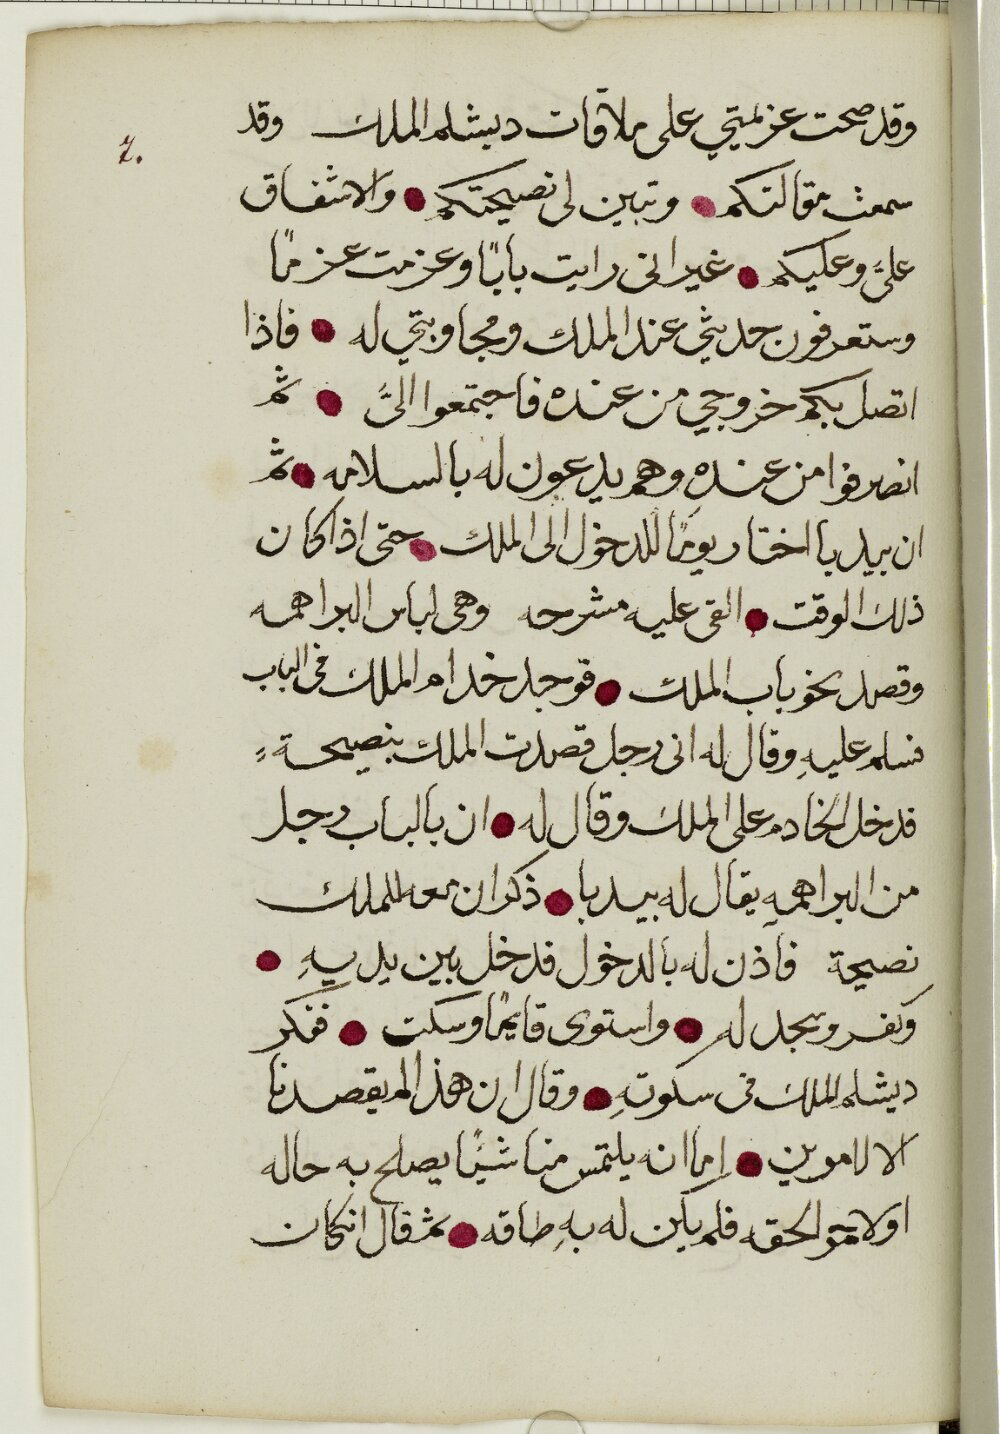 وقد صحت عزيمتي على ملاقات ديشلم الملك وقد
سمعت مقالتكم وتبين لى نصيحتكم والاشفاق
علىَّ وعليكم غير انى رايت باياً وعزمت عزماً
وستعرفون حديثي عند الملك ومجاوبتي له فاذا
اتصل بكم خروجي من عنده فاجتمعوا الىَّ ثم
انصرفوا من عنده وهم يدعون له بالسلامه ثم
ان بيدبا اختار يوماً للدخول الى الملك حتى اذا كان
ذلك الوقت القى عليه مشرحه وهى لباس البراهمه
وقصد نحو باب الملك فوجد خدام الملك فى الباب
فسلم عليهِ وقال له انى رجل قصدت الملك بنصيحةٍ
فدخل الخادم على الملك وقال له ان بالباب رجل
من البراهمهِ يقال له بيدبا ذكر ان معه للملك
نصيحة فاذن له بالدخول فدخل بين يديهِ
وكفر وسجد له واستوى قايماً وسكت ففكر
ديشلم الملك فى سكوتهِ وقال ان هذا لم يقصدنا
الا لامرين اما انه يلتمس منا شيئاً يصلح به حاله
او لامر لحقه فلم يكن له بهِ طاقه ثم قال ان كان